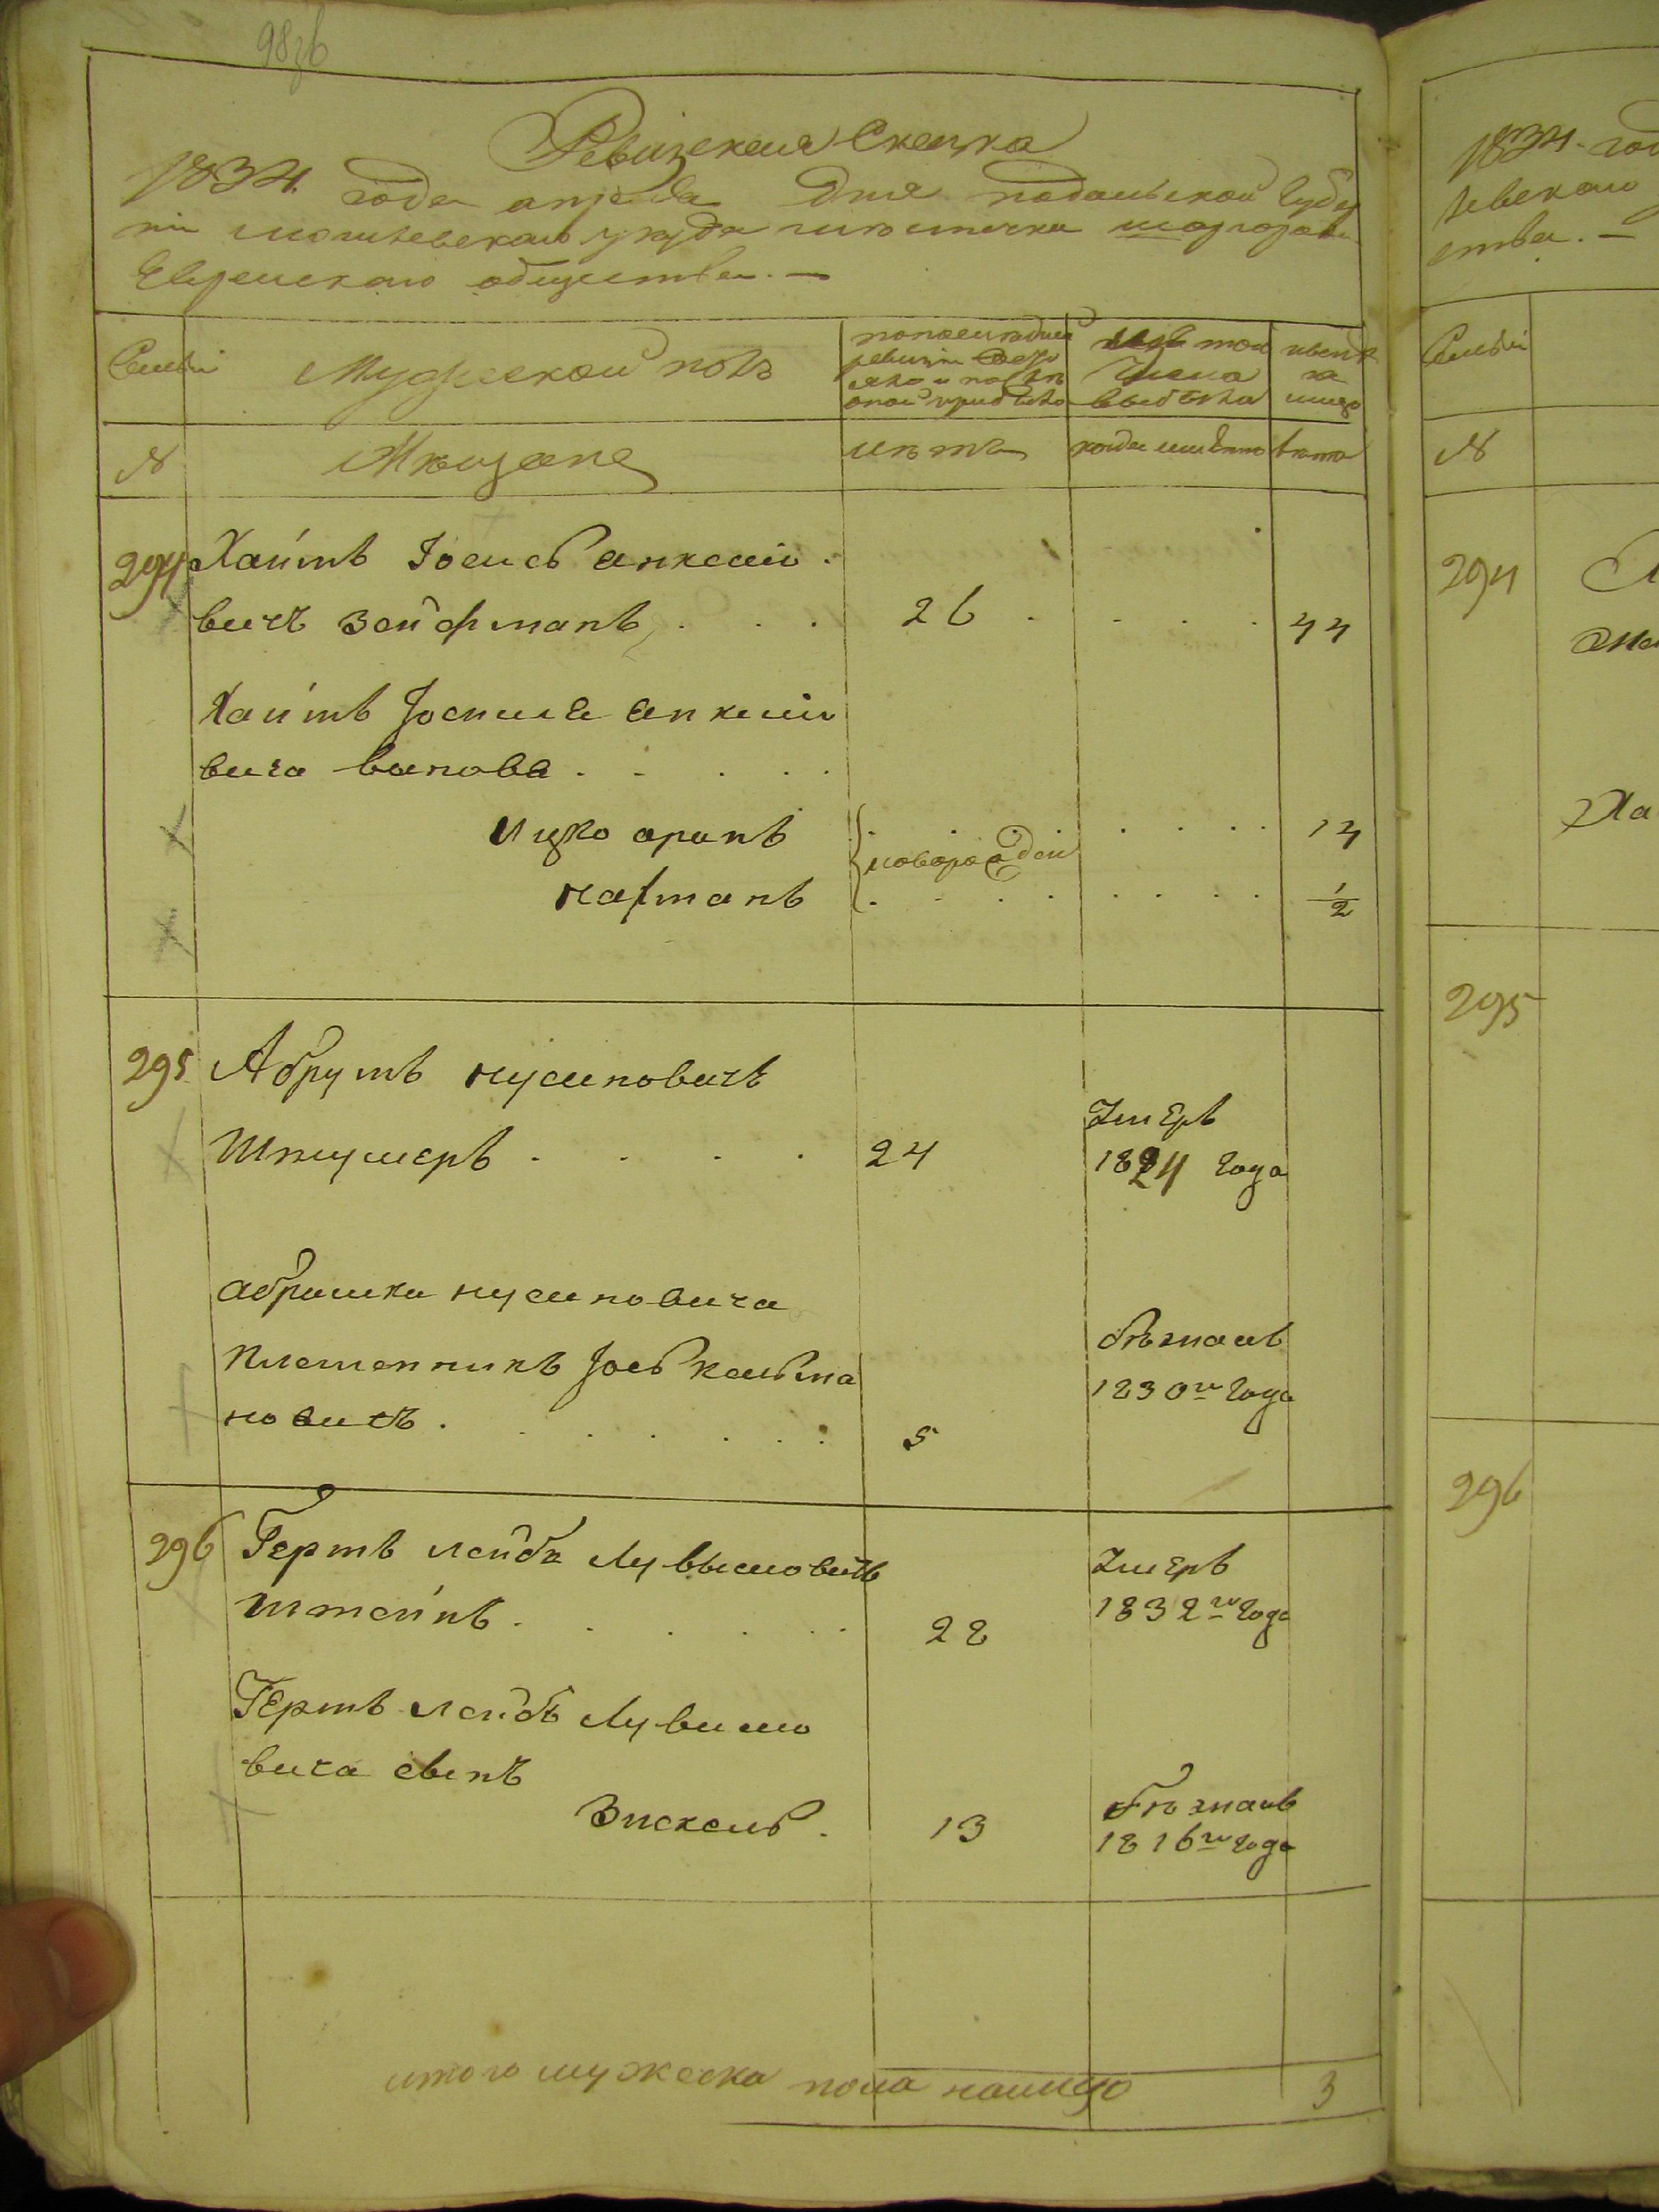 Ревизская Сказка
1834 года апреля дня подольской губер
нии могилевского уезда местечка шаргорода
Еврейского общества. —
Семьи
Мужеской полъ
по последней
ревизии состо
яло и после
оной прибыло
изъ того
числа
выбыло
ныне
на
лицо
№
Мещане
лета
когда именно
лета
294
Хаимъ Іосиєь анкелio
вичъ Зейфманъ
26
44
Хаимъ Іосиєа анкелio
вича сынова
Ицко аронъ
новорожден
14
нахманъ
1/2
295
Абрумъ нусиновичъ
Шпилеръ
24
Умеръ
1824 года
абрамка нусиновича
племенникъ Іось кельма
новичъ
5
бежалъ
1830го года
296
Гершъ лейба Лувымовичъ
штейнъ
28
Умеръ
1832го года
Гершъ лейбъ Лувимо
вича сынъ
Зискель
13
бежалъ
1816го года
итого мужеска пола налицо
3
1834 год
левского
ства. —
Семьи
№
294
Ха
295
296